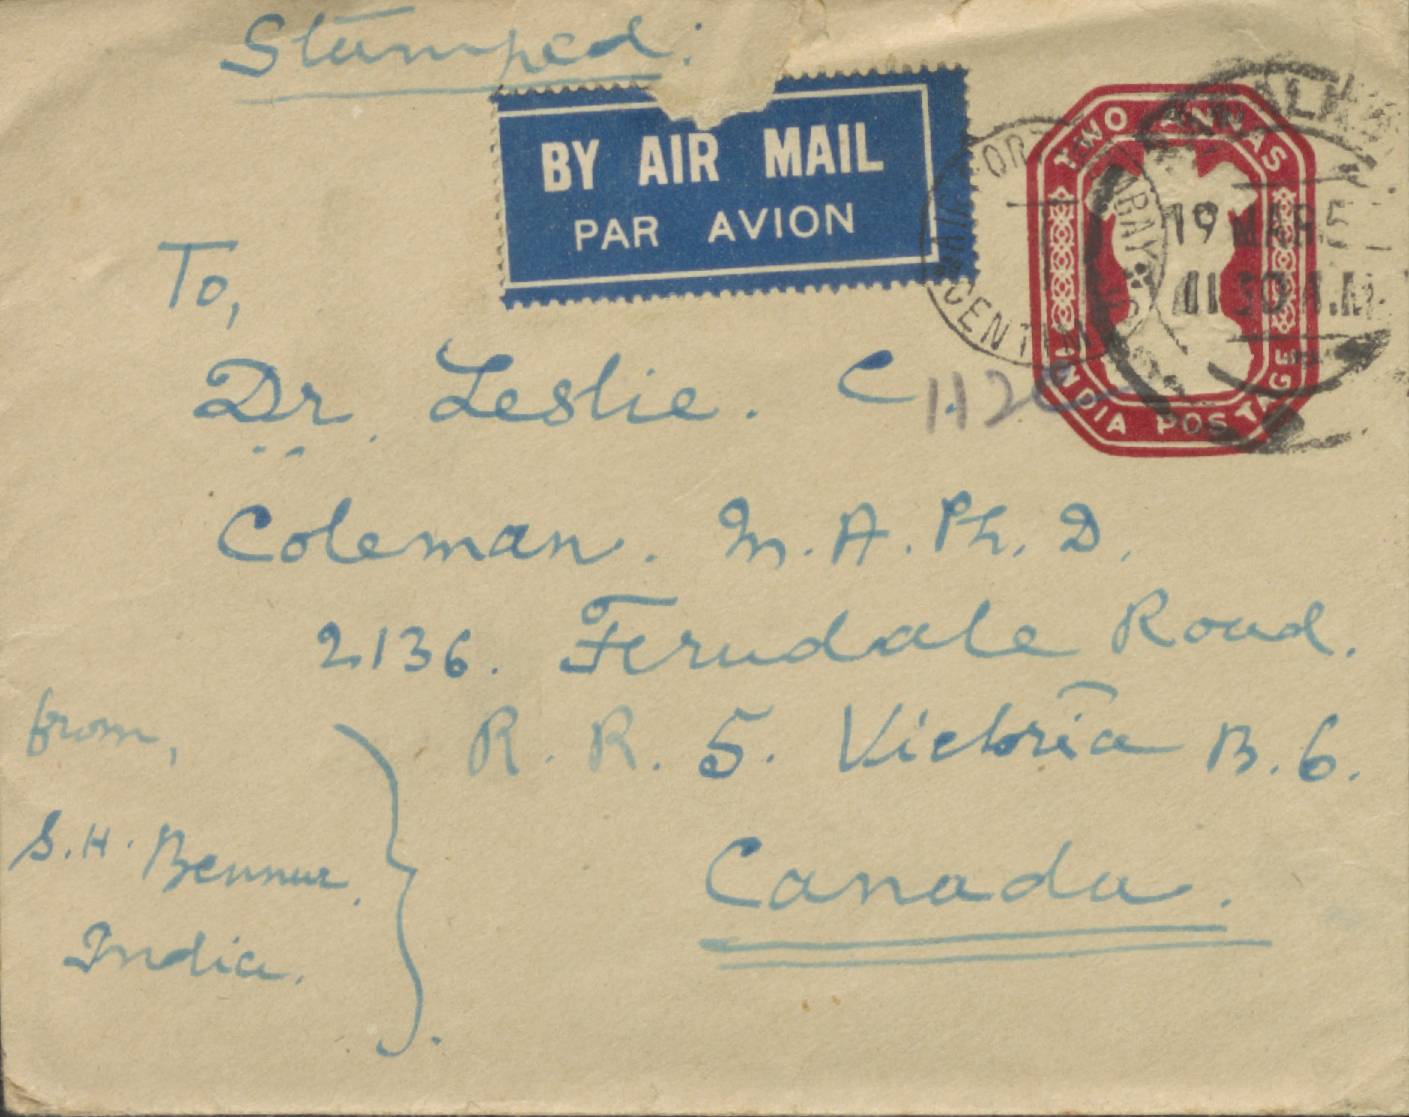 Stamped:
BY AIR MAIL
PAR AVION
TWO ANNAS
INDIA POSTAGE
19 MAR 5
11 30 A.M.
1120
To,
Dr. Leslie. C.
Coleman. M.A. Ph.D.
2136. Ferndale Road.
R.R. 5. Victoria B.C.
Canada.
from,
S.H. Bennur.
India.